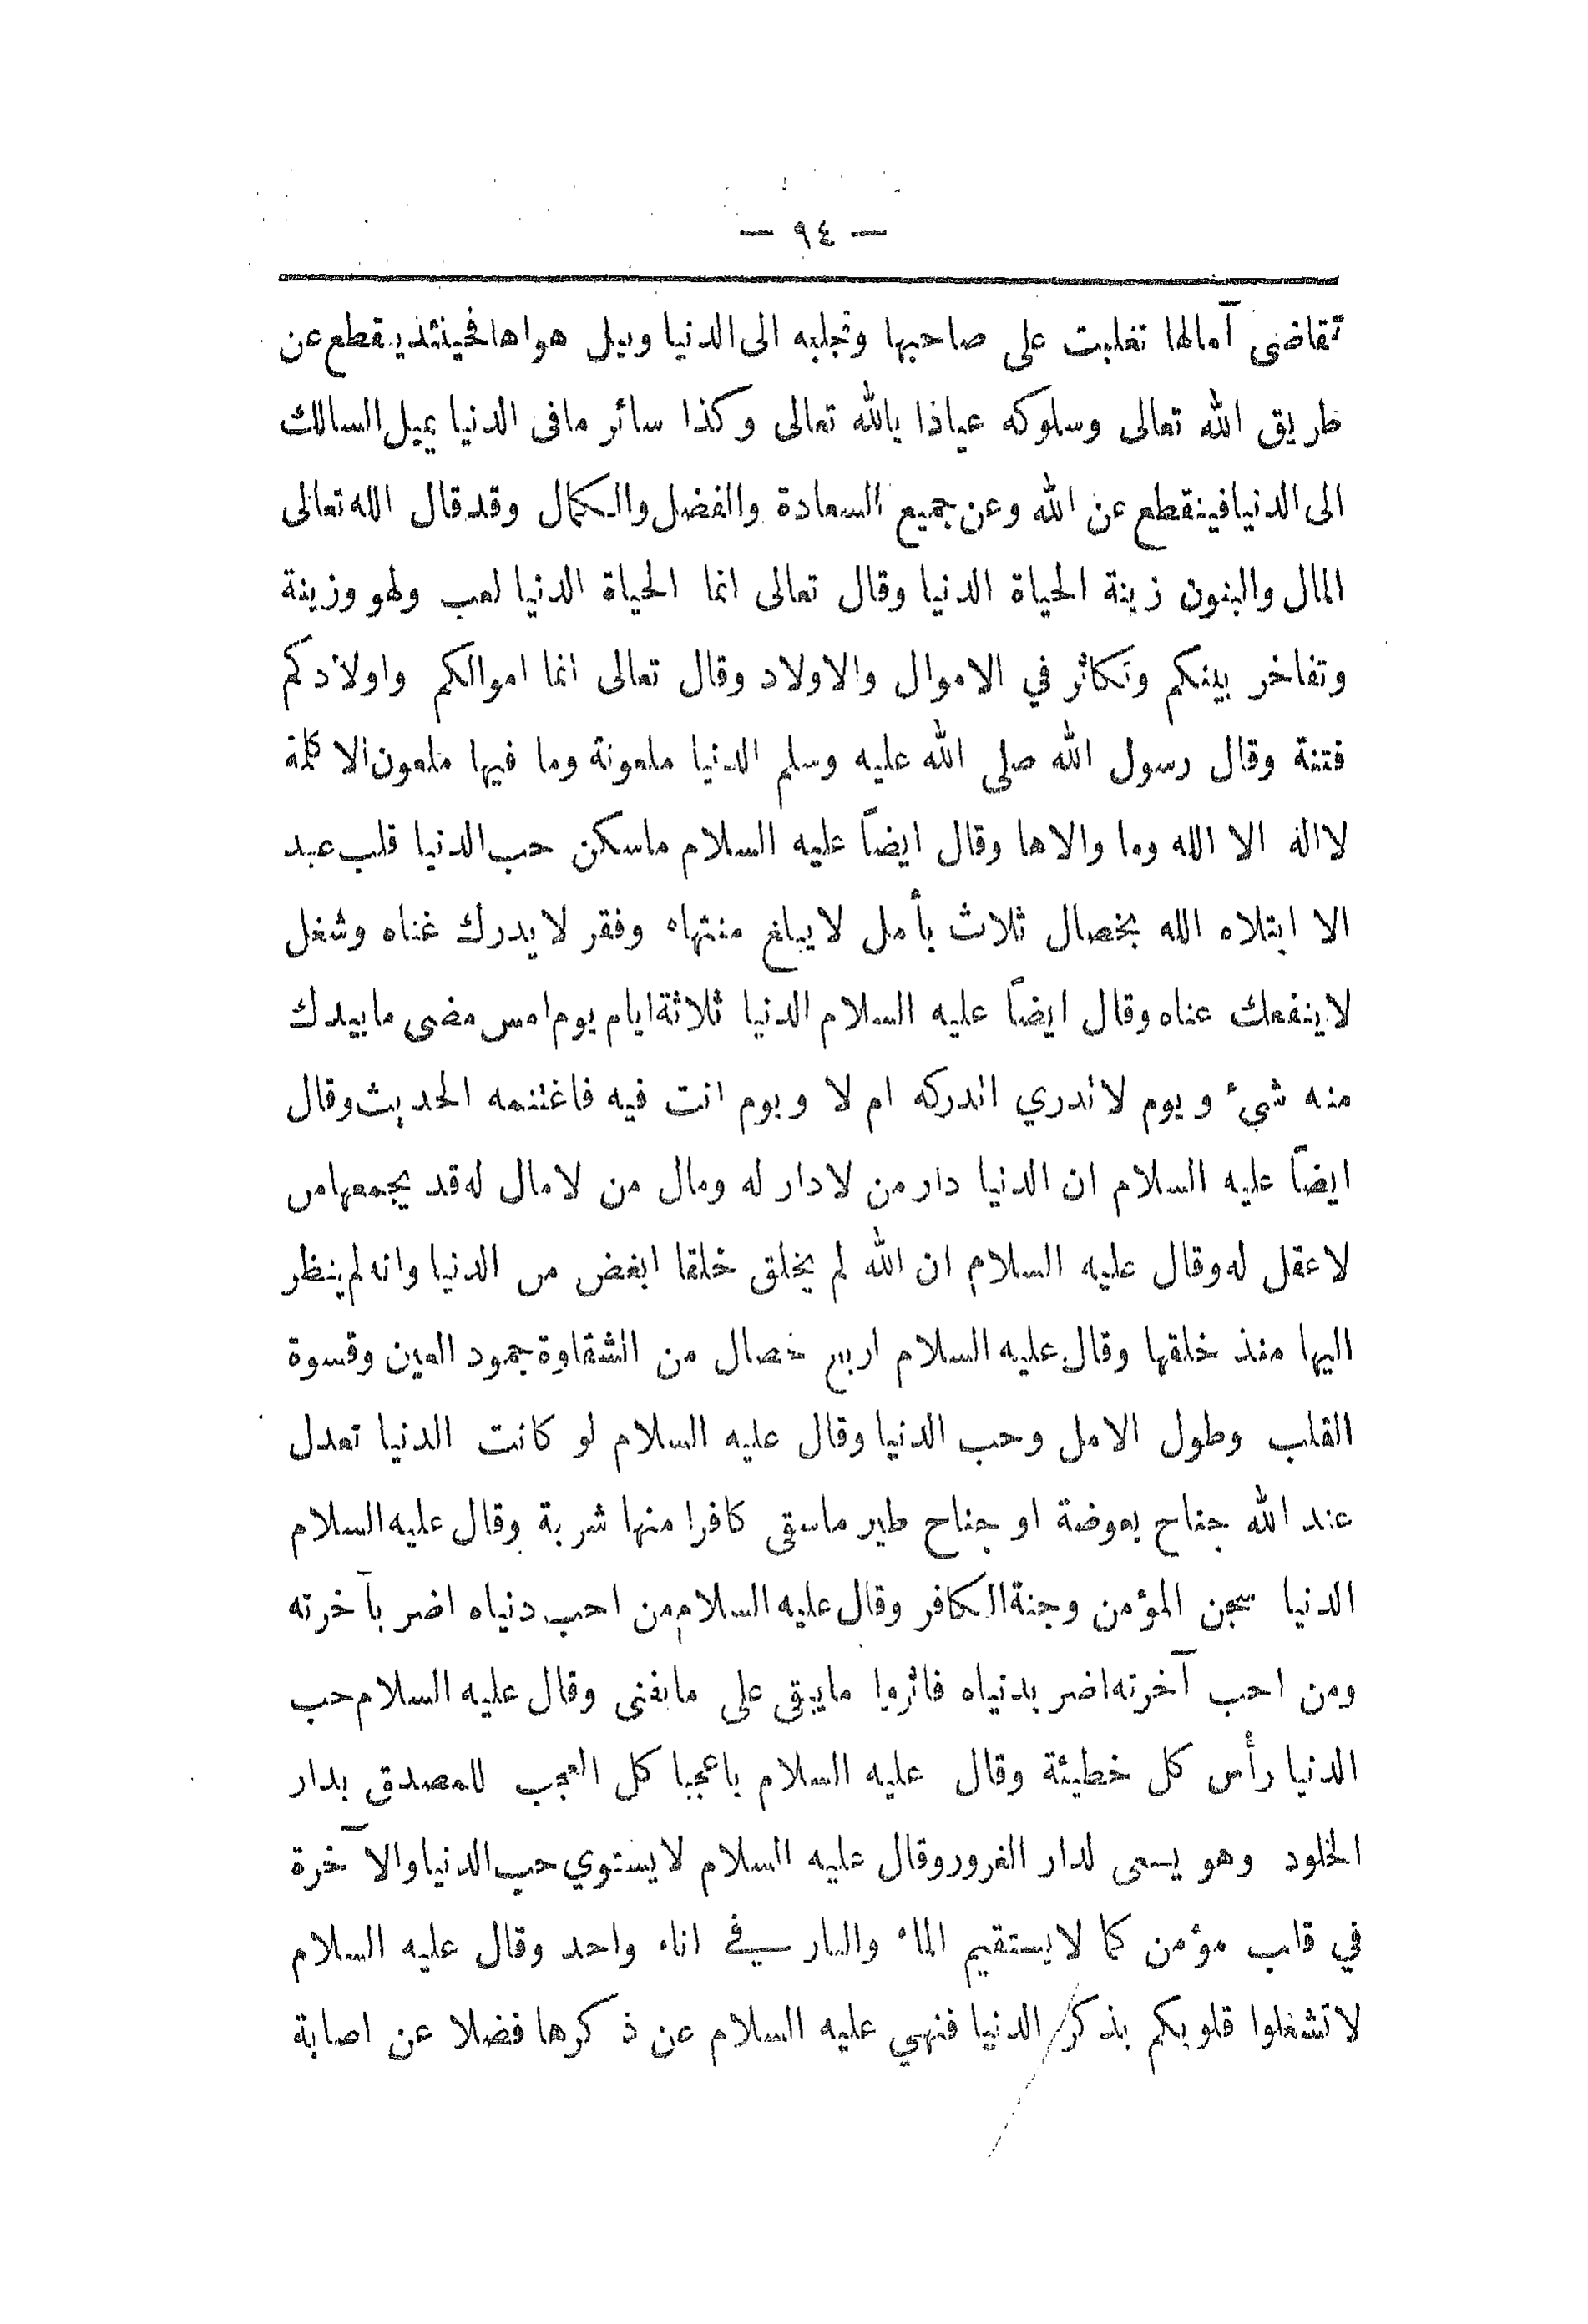 — ٩٤ —
تقاضى آمالها تغلبت على صاحبها وتجلبه الى الدنيا وبيل هواها فحينئذ يقطع عن
طريق الله تعالى وسلوكه عياذا بالله تعالى وكذا سائر مافى الدنيا يميل السالك
الى الدنيا فينقطع عن الله وعن جميع السعادة والفضل والكمال وقد قال الله تعالى
المال والبنون زينة الحياة الدنيا وقال تعالى انما الحياة الدنيا لعب ولهو وزينة
وتفاخر بينكم وتكاثر في الاموال والاولاد وقال تعالى انما اموالكم واولادكم
فتنة وقال رسول الله صلى الله عليه وسلم الدنيا ملعونة وما فيها ملعون الا كلمة
لا اله الا الله وما والاها وقال ايضاً عليه السلام ماسكن حب الدنيا قلب عبد
الا ابتلاه الله بخصال ثلاث بأمل لايبلغ منتهاه وفقر لايدرك غناه وشغل
لاينفعك عناه وقال ايضاً عليه السلام الدنيا ثلاثة ايام يوم امس مضى مابيدك
منه شيء ويوم لاتدري اتدركه ام لا ويوم انت فيه فاغتنمه الحديث وقال
ايضاً عليه السلام ان الدنيا دار من لادار له ومال من لامال له قد يجمعها من
لاعقل له وقال عليه السلام ان الله لم يخلق خلقا ابغض من الدنيا وانه لم ينظر
اليها منذ خلقها وقال عليه السلام اربع خصال من الشقاوة جمود العين وقسوة
القلب وطول الامل وحب الدنيا وقال عليه السلام لو كانت الدنيا تعدل
عند الله جناح بعوضة او جناح طير ماسقى كافرا منها شربة وقال عليه السلام
الدنيا سجن المؤمن وجنة الكافر وقال عليه السلام من احب دنياه اضر بآخرته
ومن احب آخرته اضر بدنياه فاثروا مايبقى على مايفنى وقال عليه السلام حب
الدنيا رأس كل خطيئة وقال عليه السلام ياعجبا كل العجب للمصدق بدار
الخلود وهو يسعى لدار الغرور وقال عليه السلام لايستوي حب الدنيا والآخرة
في قلب مؤمن كما لايستقيم الماء والنار في اناء واحد وقال عليه السلام
لاتشغلوا قلوبكم بذكر الدنيا فنهي عليه السلام عن ذكرها فضلا عن اصابة